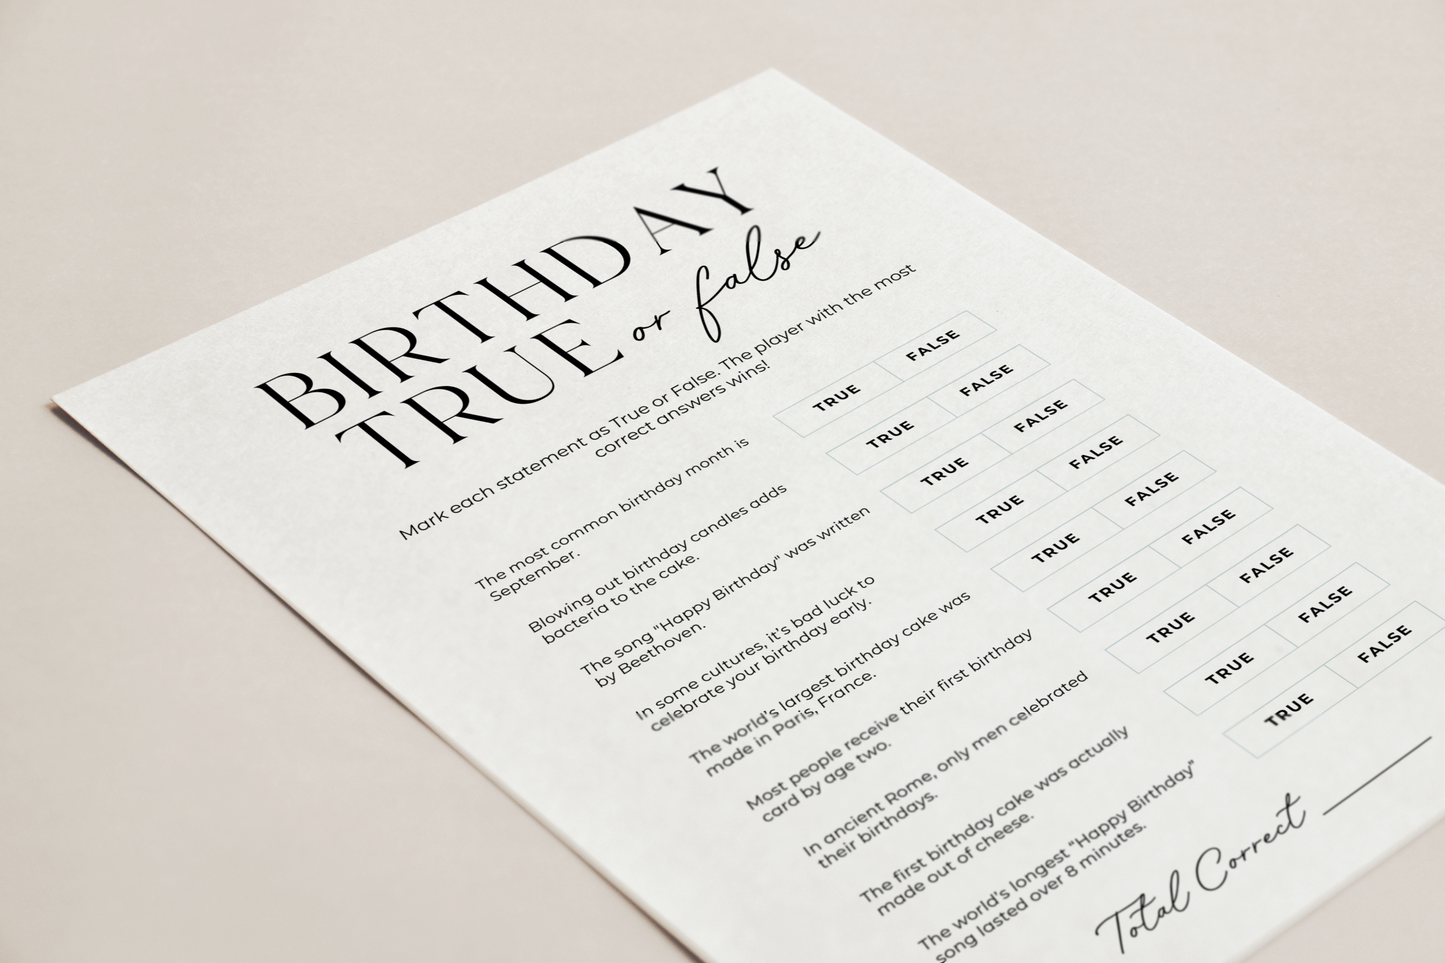 BIRTHDAY
TRUE or false
Mark each statement as True or False. The player with the most
correct answers wins!
The most common birthday month is
September.
TRUE FALSE
Blowing out birthday candles adds
bacteria to the cake.
TRUE FALSE
The song "Happy Birthday" was written
by Beethoven.
TRUE FALSE
In some cultures, it's bad luck to
celebrate your birthday early.
TRUE FALSE
The world's largest birthday cake was
made in Paris, France.
TRUE FALSE
Most people receive their first birthday
card by age two.
TRUE FALSE
In ancient Rome, only men celebrated
their birthdays.
TRUE FALSE
The first birthday cake was actually
made out of cheese.
TRUE FALSE
The world's longest "Happy Birthday"
song lasted over 8 minutes.
TRUE FALSE
Total Correct